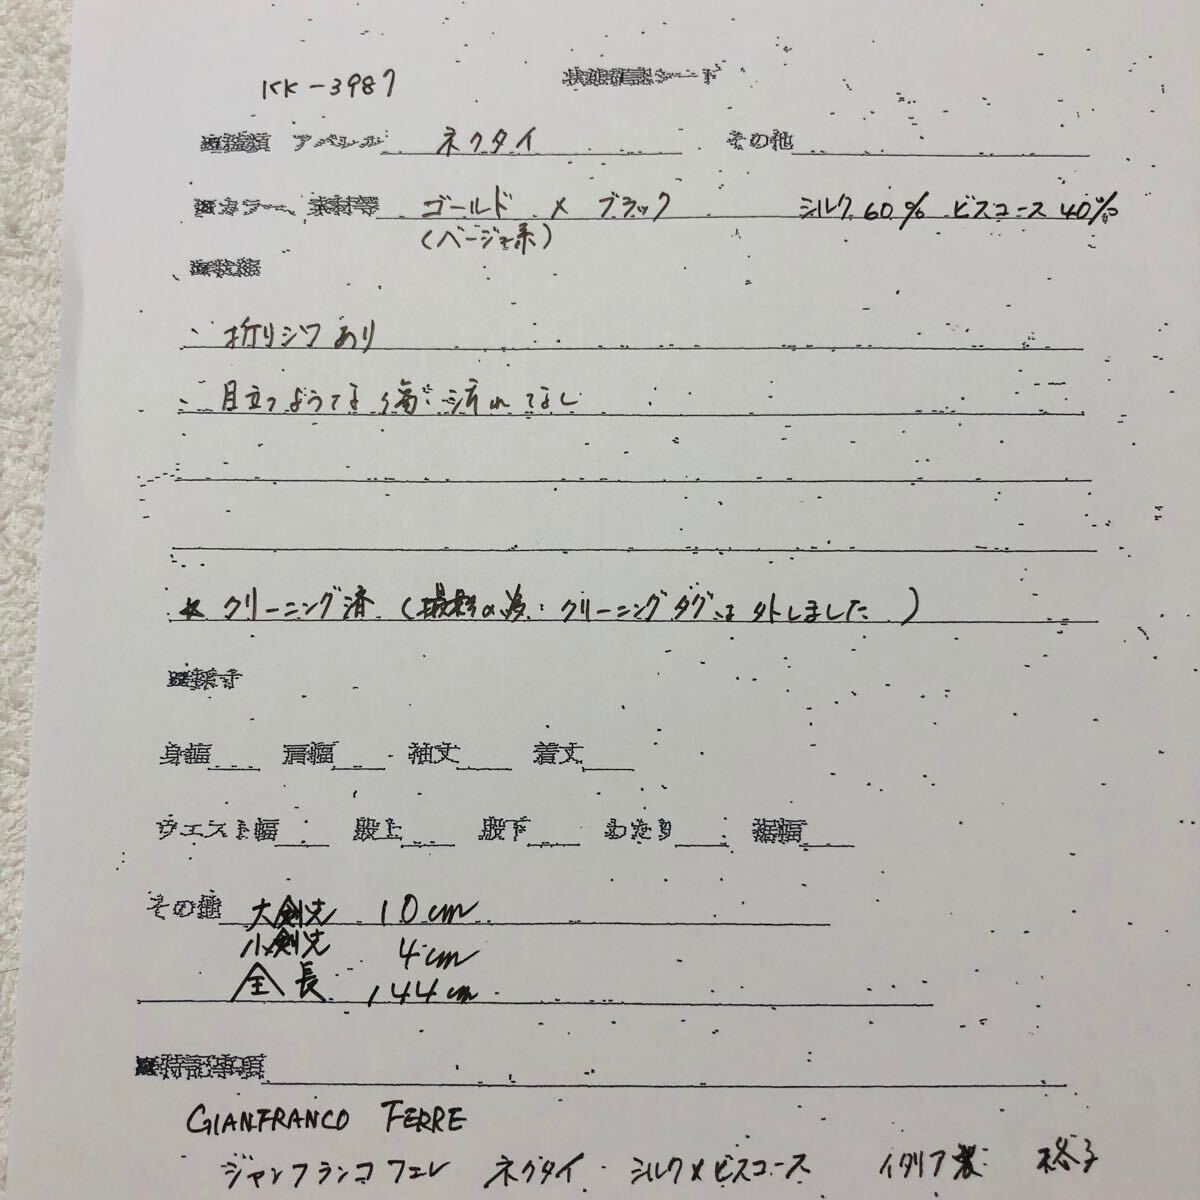 KK-3987
状態確認シート
■種類 アパレル ネクタイ その他
■カラー、素材等 ゴールド × ブラック シルク60% ビスコース40%
(ベージュ系)
■状態
・折りジワあり
・目立つような傷・汚れなし
★クリーニング済 (撮影の為、クリーニングタグは外しました)
■採寸
身幅 肩幅 袖丈 着丈
ウエスト幅 股上 股下 わたり 裾幅
その他 大剣先 10cm
小剣先 4cm
全長 144cm
■特記事項
GIANFRANCO FERRE
ジャンフランコフェレ ネクタイ シルク×ビスコース イタリア製 格子